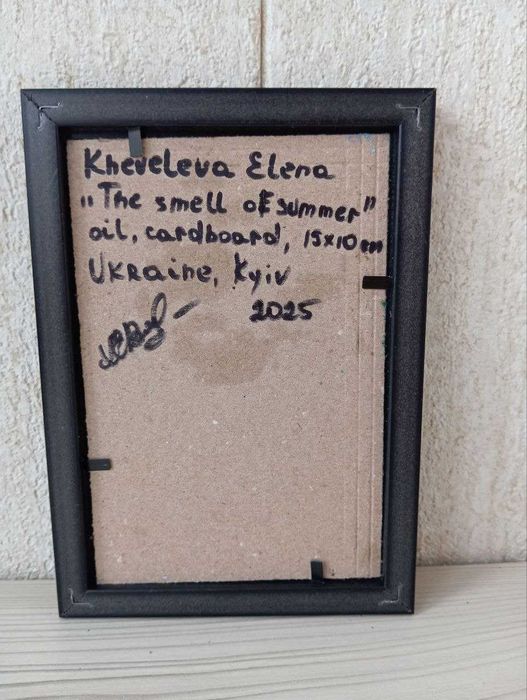 Kheveleva Elena
"The smell of summer"
oil, cardboard, 15x10 cm
Ukraine, Kyiv
2025